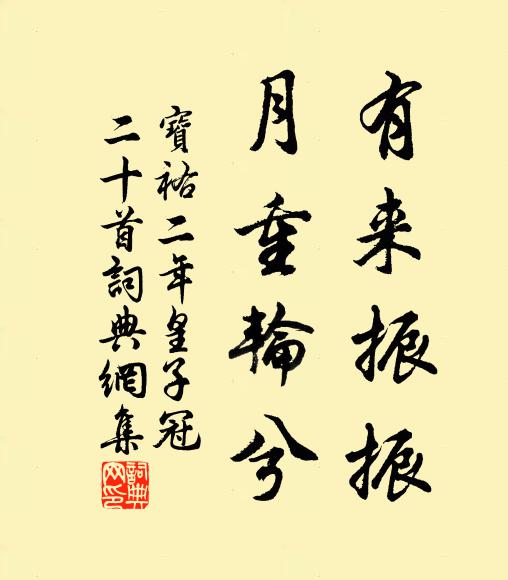 有来振振
月重輪兮
寶祐二年皇子冠
二十首詞典網集
詞典
网印